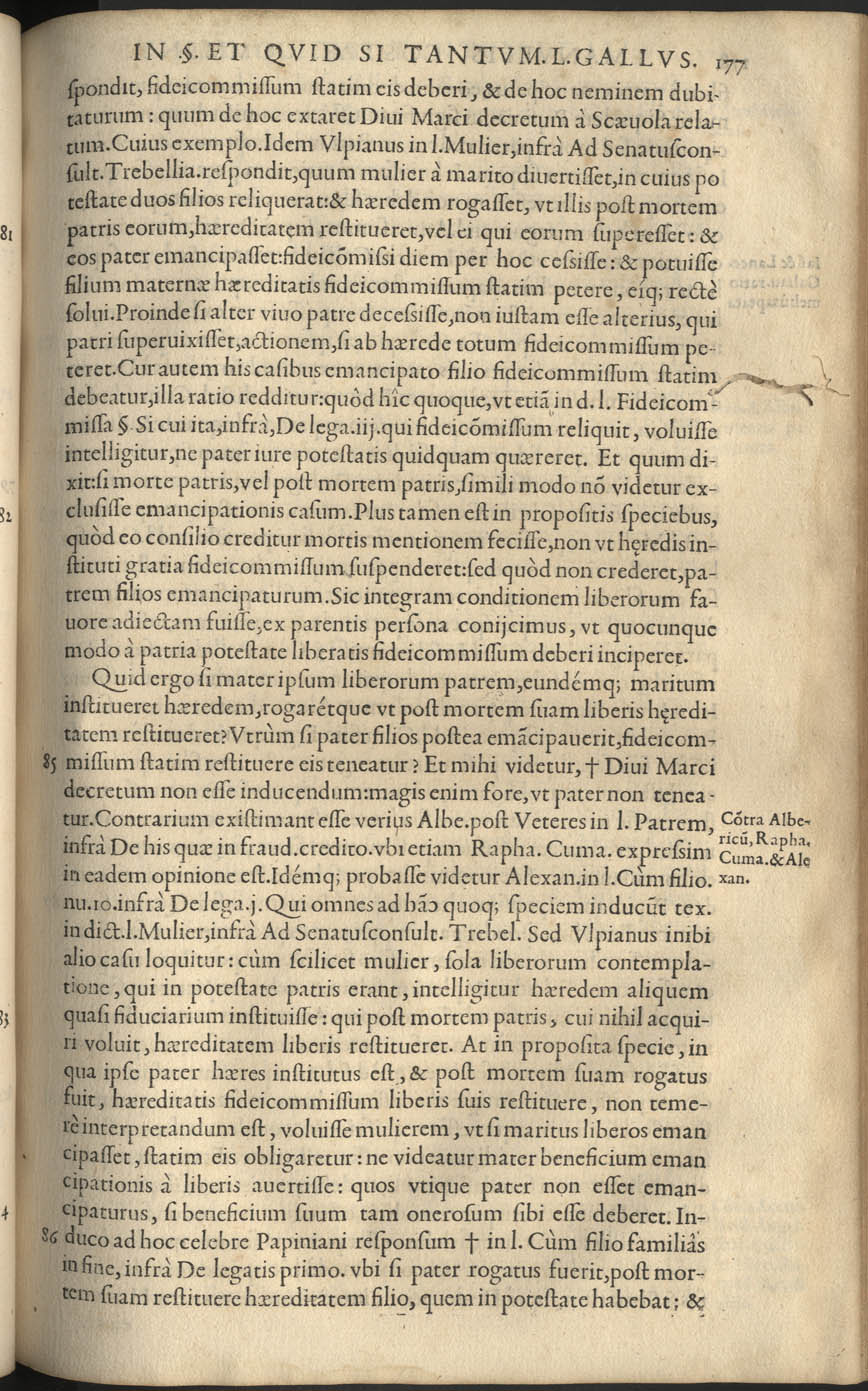 IN .§. ET QVID SI TANTVM. L. GALLVS. 177
ſpondit, fideicommiſſum ſtatim eis deberi, & de hoc neminem dubi-
taturum : quum de hoc extaret Diui Marci decretum à Scæuola rela-
tum. Cuius exemplo. Idem Vlpianus in l. Mulier, infrà Ad Senatuſcon-
ſult. Trebellia. reſpondit, quum mulier à marito diuertiſſet, in cuius po
teſtate duos filios reliquerat: & hæredem rogaſſet, vt illis poſt mortem
81 patris eorum, hæreditatem reſtitueret, vel ei qui eorum ſupereſſet : &
eos pater emancipaſſet: fideicõmiſsi diem per hoc ceſsiſſe : & potuiſſe
filium maternæ hæreditatis fideicommiſſum ſtatim petere, eíq; rectè
ſolui. Proinde ſi alter viuo patre deceſsiſſe, non iuſtam eſſe alterius, qui
patri ſuperuixiſſet, actionem, ſi ab hærede totum fideicommiſſum pe-
teret. Cur autem his caſibus emancipato filio fideicommiſſum ſtatim
debeatur, illa ratio redditur: quòd hîc quoque, vt etiã in d. l. Fideicom-
miſſa §. Si cui ita, infrà, De lega. iij. qui fideicõmiſſum reliquit, voluiſſe
intelligitur, ne pater iure poteſtatis quidquam quæreret. Et quum di-
xit: ſi morte patris, vel poſt mortem patris, ſimili modo nõ videtur ex-
82 cluſiſſe emancipationis caſum. Plus tamen eſt in propoſitis ſpeciebus,
quòd eo conſilio creditur mortis mentionem feciſſe, non vt hęredis in-
ſtituti gratia fideicommiſſum ſuſpenderet: ſed quòd non crederet, pa-
trem filios emancipaturum. Sic integram conditionem liberorum fa-
uore adiectam fuiſſe, ex parentis perſona conijcimus, vt quocunque
modo à patria poteſtate liberatis fideicommiſſum deberi inciperet.
Quid ergo ſi mater ipſum liberorum patrem, eundémq; maritum
inſtitueret hæredem, rogarétque vt poſt mortem ſuam liberis hęredi-
tatem reſtitueret? Vtrùm ſi pater filios poſtea emãcipauerit, fideicom-
85 miſſum ſtatim reſtituere eis teneatur ? Et mihi videtur, † Diui Marci
decretum non eſſe inducendum: magis enim fore, vt pater non tenea-
tur. Contrarium exiſtimant eſſe verius Albe. poſt Veteres in l. Patrem, Cõtra Albe-
infrà De his quæ in fraud. credito. vbi etiam Rapha. Cuma. expreſsim ricũ, Rapha.
in eadem opinione eſt. Idémq; probaſſe videtur Alexan. in l. Cùm filio. Cuma. & Ale
nu. 10. infrà De lega. j. Qui omnes ad hãc quoq; ſpeciem inducũt tex. xan.
in dict. l. Mulier, infrà Ad Senatuſconſult. Trebel. Sed Vlpianus inibi
alio caſu loquitur : cùm ſcilicet mulier, ſola liberorum contempla-
tione, qui in poteſtate patris erant, intelligitur hæredem aliquem
83 quaſi fiduciarium inſtituiſſe : qui poſt mortem patris, cui nihil acqui-
ri voluit, hæreditatem liberis reſtitueret. At in propoſita ſpecie, in
qua ipſe pater hæres inſtitutus eſt, & poſt mortem ſuam rogatus
fuit, hæreditatis fideicommiſſum liberis ſuis reſtituere, non teme-
rè interpretandum eſt, voluiſſe mulierem, vt ſi maritus liberos eman
cipaſſet, ſtatim eis obligaretur : ne videatur mater beneficium eman
cipationis à liberis auertiſſe : quos vtique pater non eſſet eman-
4 cipaturus, ſi beneficium ſuum tam oneroſum ſibi eſſe deberet. In-
86 duco ad hoc celebre Papiniani reſponſum † in l. Cùm filio familiâs
in fine, infrà De legatis primo. vbi ſi pater rogatus fuerit, poſt mor-
tem ſuam reſtituere hæreditatem filio, quem in poteſtate habebat : &